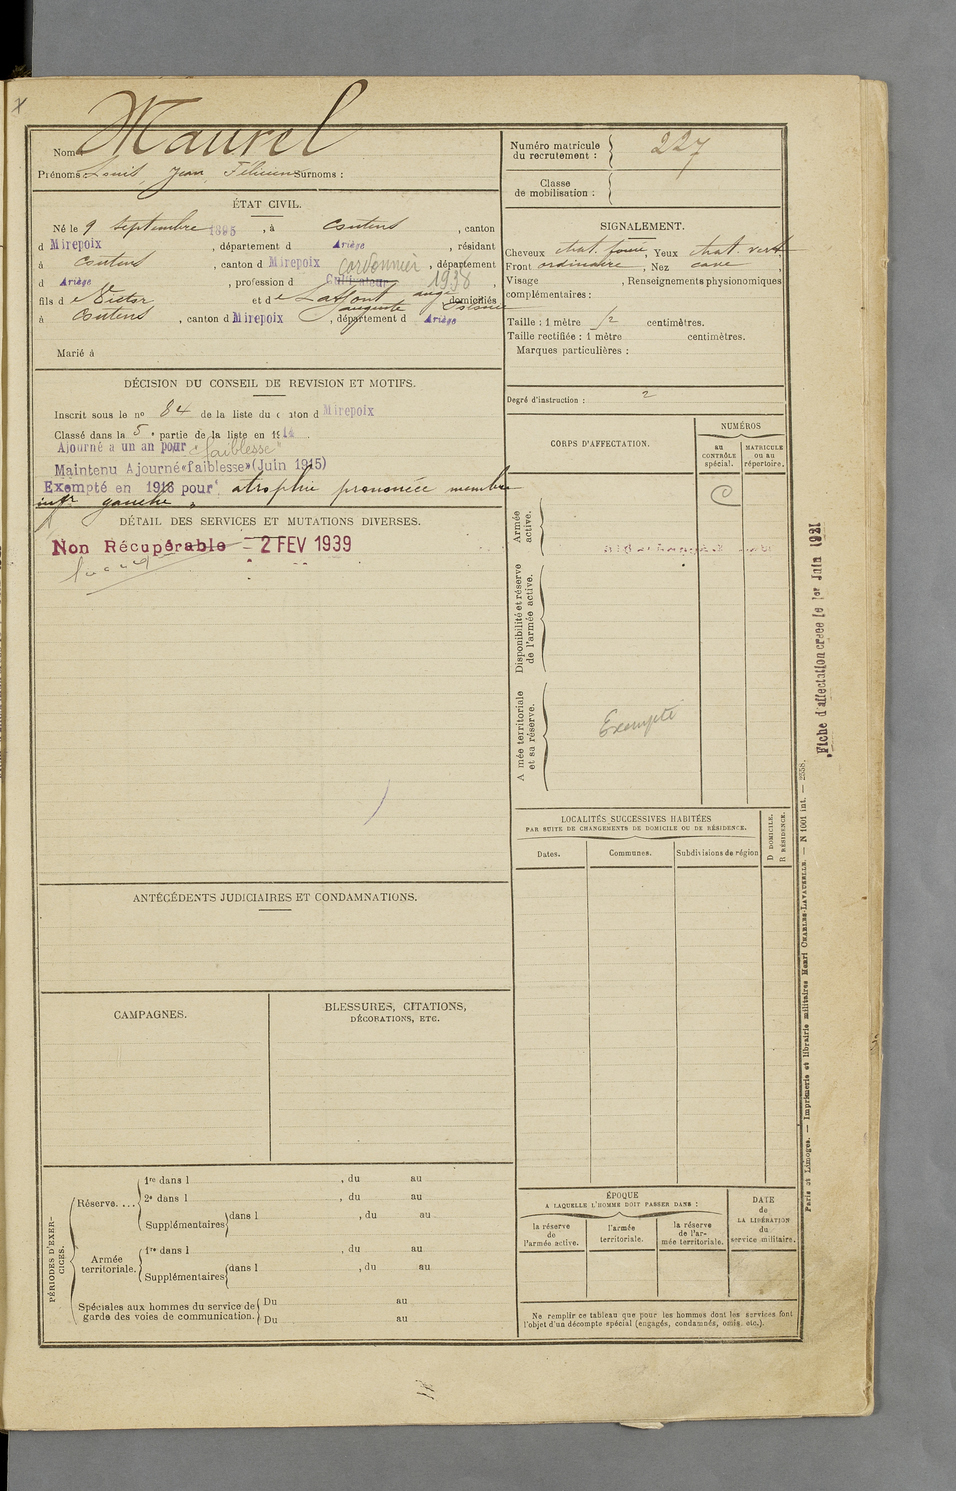 Nom : Maurel
Prénoms : Louis, Jean, Félicien Surnoms :
Numéro matricule
du recrutement : 227
Classe
de mobilisation :
ÉTAT CIVIL.
Né le 9 septembre 1895, à Coutens, canton
d Mirepoix, département d Ariège, résidant
à Coutens, canton d Mirepoix, département
cordonnier
d Ariège, profession d Cultivateur 1938,
fils de Victor et de Laffont domiciliés
auguste
à Coutens, canton d Mirepoix, département d Ariège
Marié à
SIGNALEMENT.
Cheveux chat. foncé, Yeux chat. vert
Front ordinaire, Nez cave,
Visage , Renseignements physionomiques
complémentaires :
Taille : 1 mètre 52 centimètres.
Taille rectifiée : 1 mètre centimètres.
Marques particulières :
Degré d'instruction : 2
DÉCISION DU CONSEIL DE REVISION ET MOTIFS.
Inscrit sous le no 84 de la liste du canton d Mirepoix
Classé dans la 5e partie de la liste en 1914.
Ajourné a un an pour "faiblesse"
Maintenu Ajourné «faiblesse» (Juin 1915)
Exempté en 1916 pour atrophie prononcée membre
infr gauche
DÉTAIL DES SERVICES ET MUTATIONS DIVERSES.
Non Récupérable - 2 FEV 1939
CORPS D'AFFECTATION.
NUMÉROS
au
CONTRÔLE
spécial.
MATRICULE
ou au
répertoire.
Armée
active.
Disponibilité et réserve
de l'armée active.
Armée territoriale
et sa réserve.
Exempté
Fiche d'affectation créée le 1er Juin 1921
LOCALITÉS SUCCESSIVES HABITÉES
PAR SUITE DE CHANGEMENTS DE DOMICILE OU DE RÉSIDENCE.
Dates.
Communes.
Subdivisions de région
D DOMICILE.
R RÉSIDENCE.
ANTÉCÉDENTS JUDICIAIRES ET CONDAMNATIONS.
CAMPAGNES.
BLESSURES, CITATIONS,
DÉCORATIONS, ETC.
PÉRIODES D'EXER-
CICES.
Réserve....
1re dans l , du au
2e dans l , du au
Supplémentaires dans l , du au
Armée
territoriale.
1re dans l , du au
Supplémentaires dans l , du au
Spéciales aux hommes du service de
garde des voies de communication.
Du au
Du au
ÉPOQUE
A LAQUELLE L'HOMME DOIT PASSER DANS :
la réserve
de
l'armée active.
l'armée
territoriale.
la réserve
de l'ar-
mée territoriale.
DATE
de
LA LIBÉRATION
du
service militaire.
Ne remplir ce tableau que pour les hommes dont les services font
l'objet d'un décompte spécial (engagés, condamnés, omis, etc.).
Paris et Limoges. — Imprimerie et librairie militaires Henri CHARLES-LAVAUZELLE. — N 1001 int. — 2558.